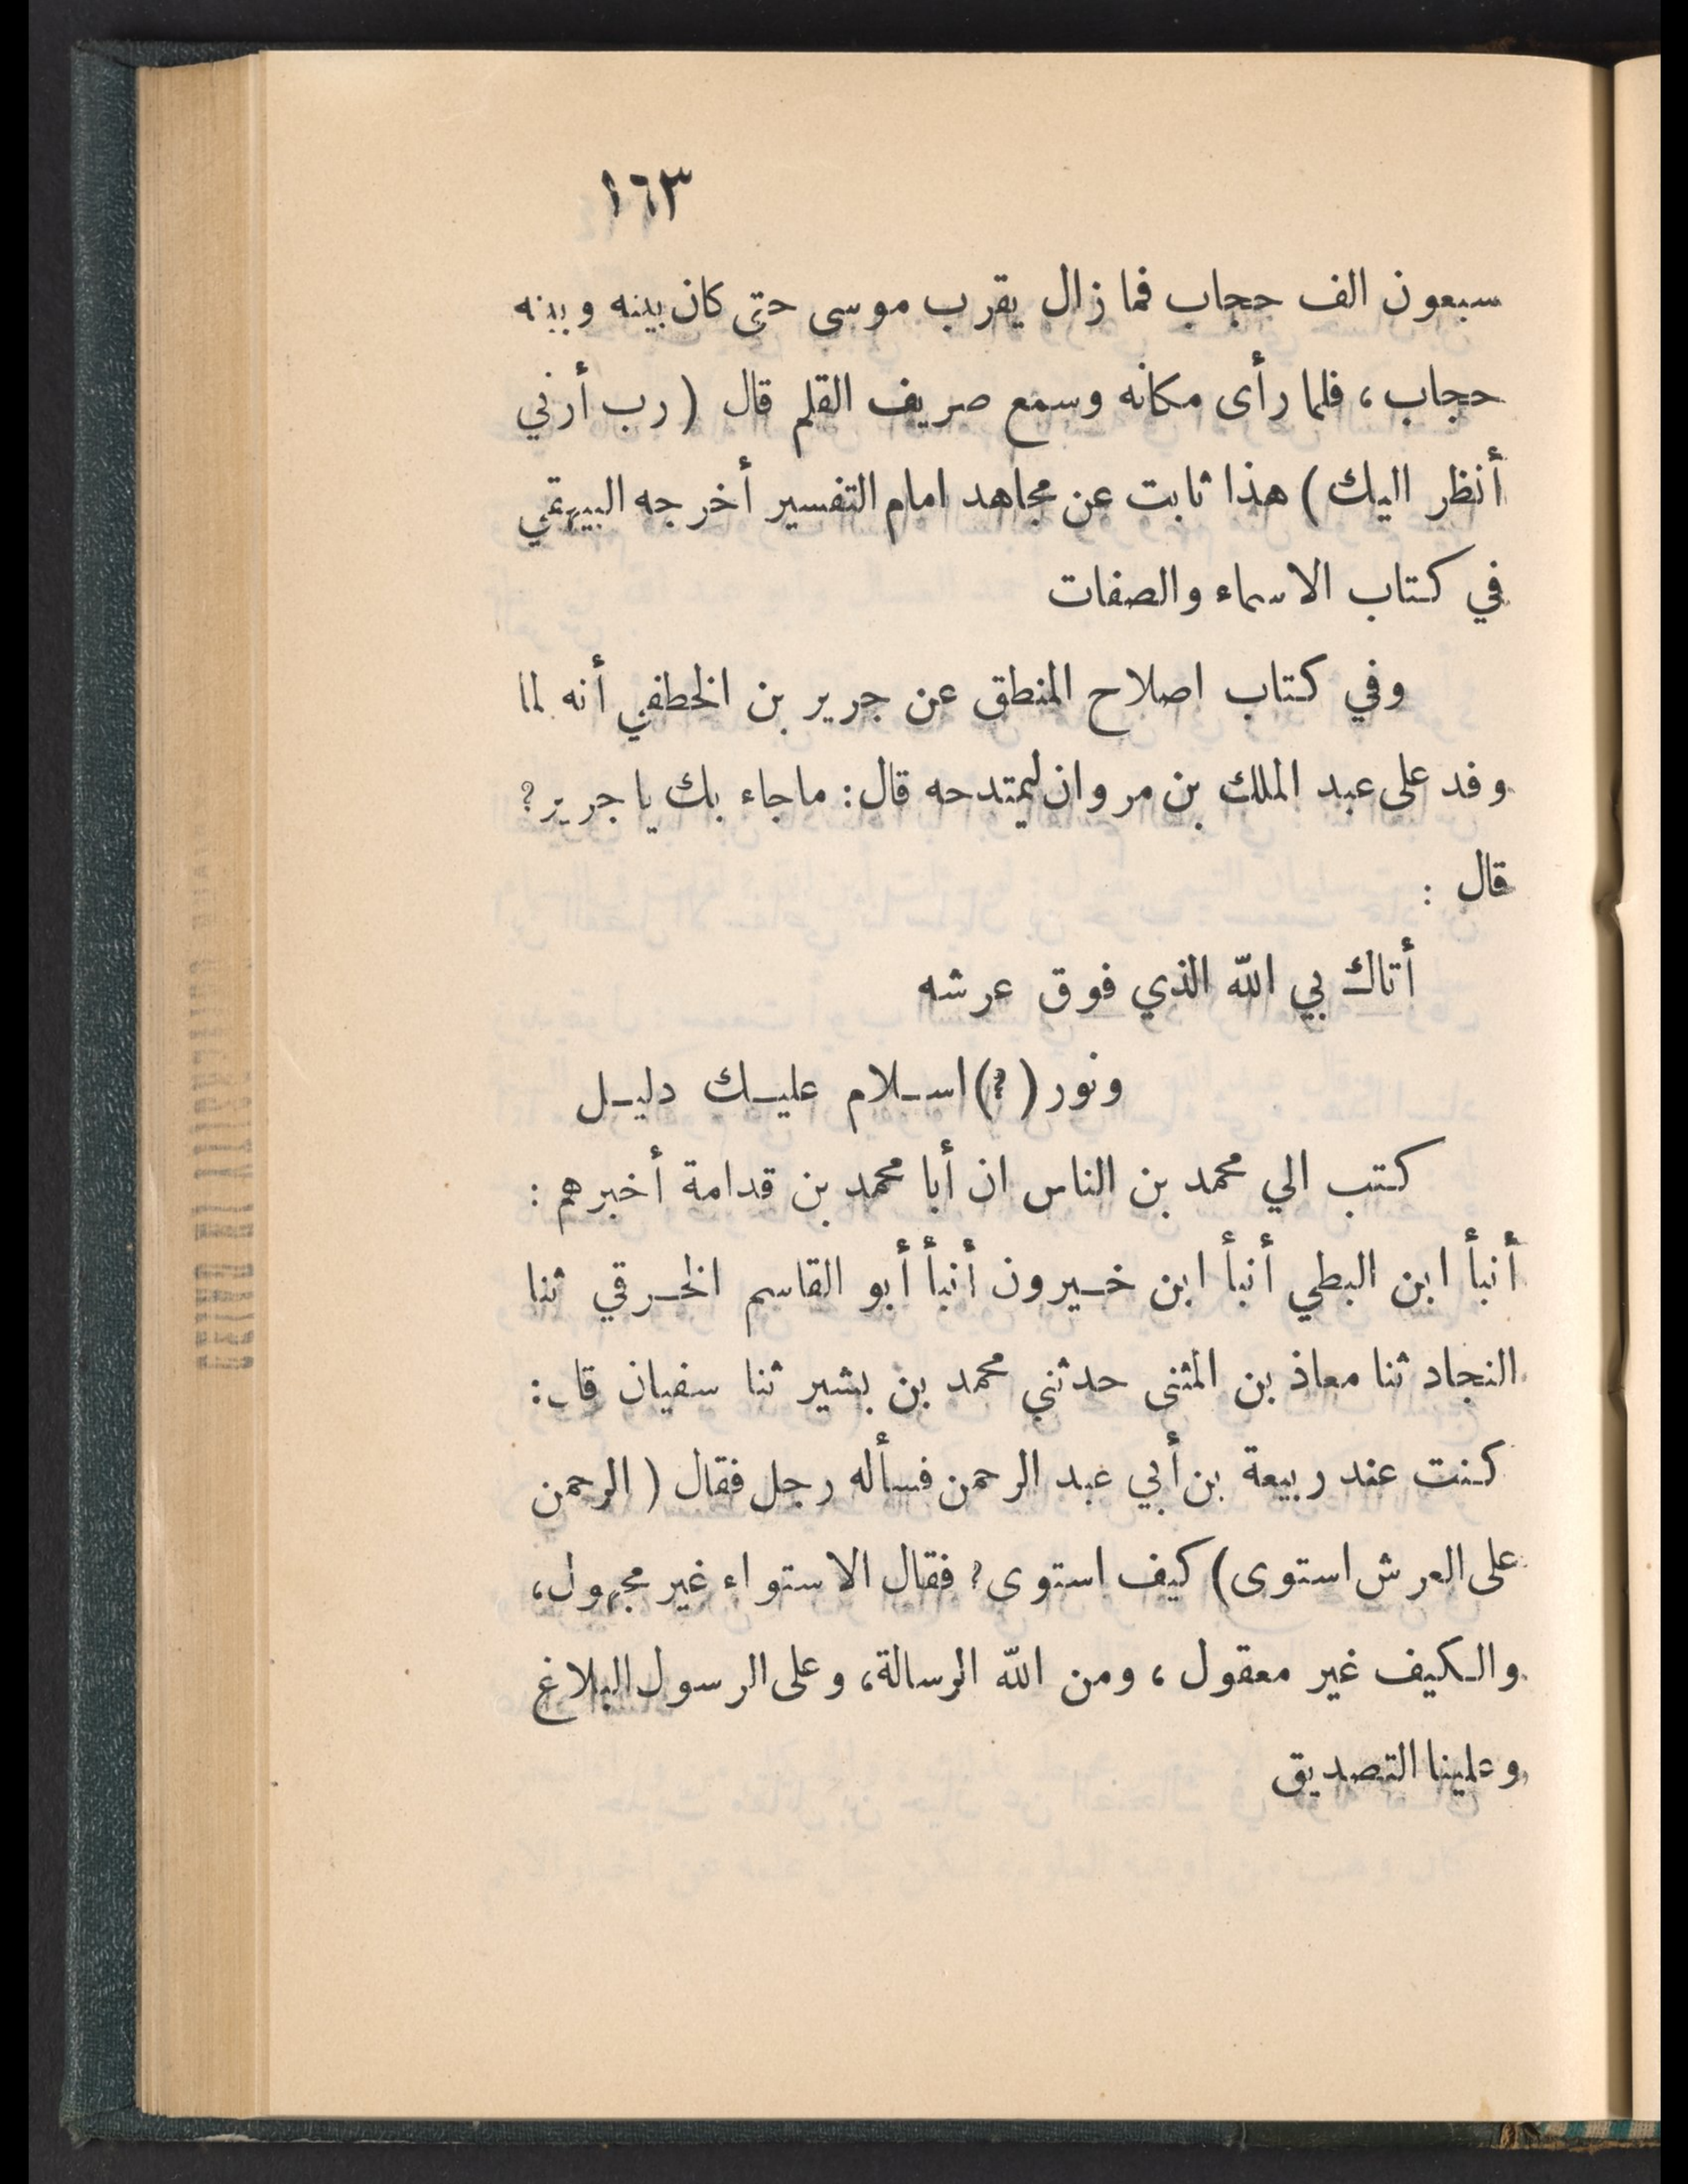 ١٦٣
سبعون الف حجاب فما زال يقرب موسى حتى كان بينه وبينه
حجاب، فلما رأى مكانه وسمع صريف القلم قال (رب أرني
أنظر اليك) هذا ثابت عن مجاهد امام التفسير أخرجه البيهقي
في كتاب الاسماء والصفات
وفي كتاب اصلاح المنطق عن جرير بن الخطفي أنه لما
وفد على عبد الملك بن مروان ليمتدحه قال: ما جاء بك يا جرير؟
قال :
أتاك بي الله الذي فوق عرشه
ونور (؟) اسـلام عليـك دليـل
كتب الي محمد بن الناس ان أبا محمد بن قدامة أخبرهم :
أنبأ ابن البطي أنبأ ابن خـيرون أنبأ أبو القاسم الخـرقي ثنا
النجاد ثنا معاذ بن المثنى حدثني محمد بن بشير ثنا سفيان قال:
كنت عند ربيعة بن أبي عبد الرحمن فسأله رجل فقال (الرحمن
على العرش استوى) كيف استوى؟ فقال الاستواء غير مجهول،
والكيف غير معقول، ومن الله الرسالة، وعلى الرسول البلاغ
وعلينا التصديق